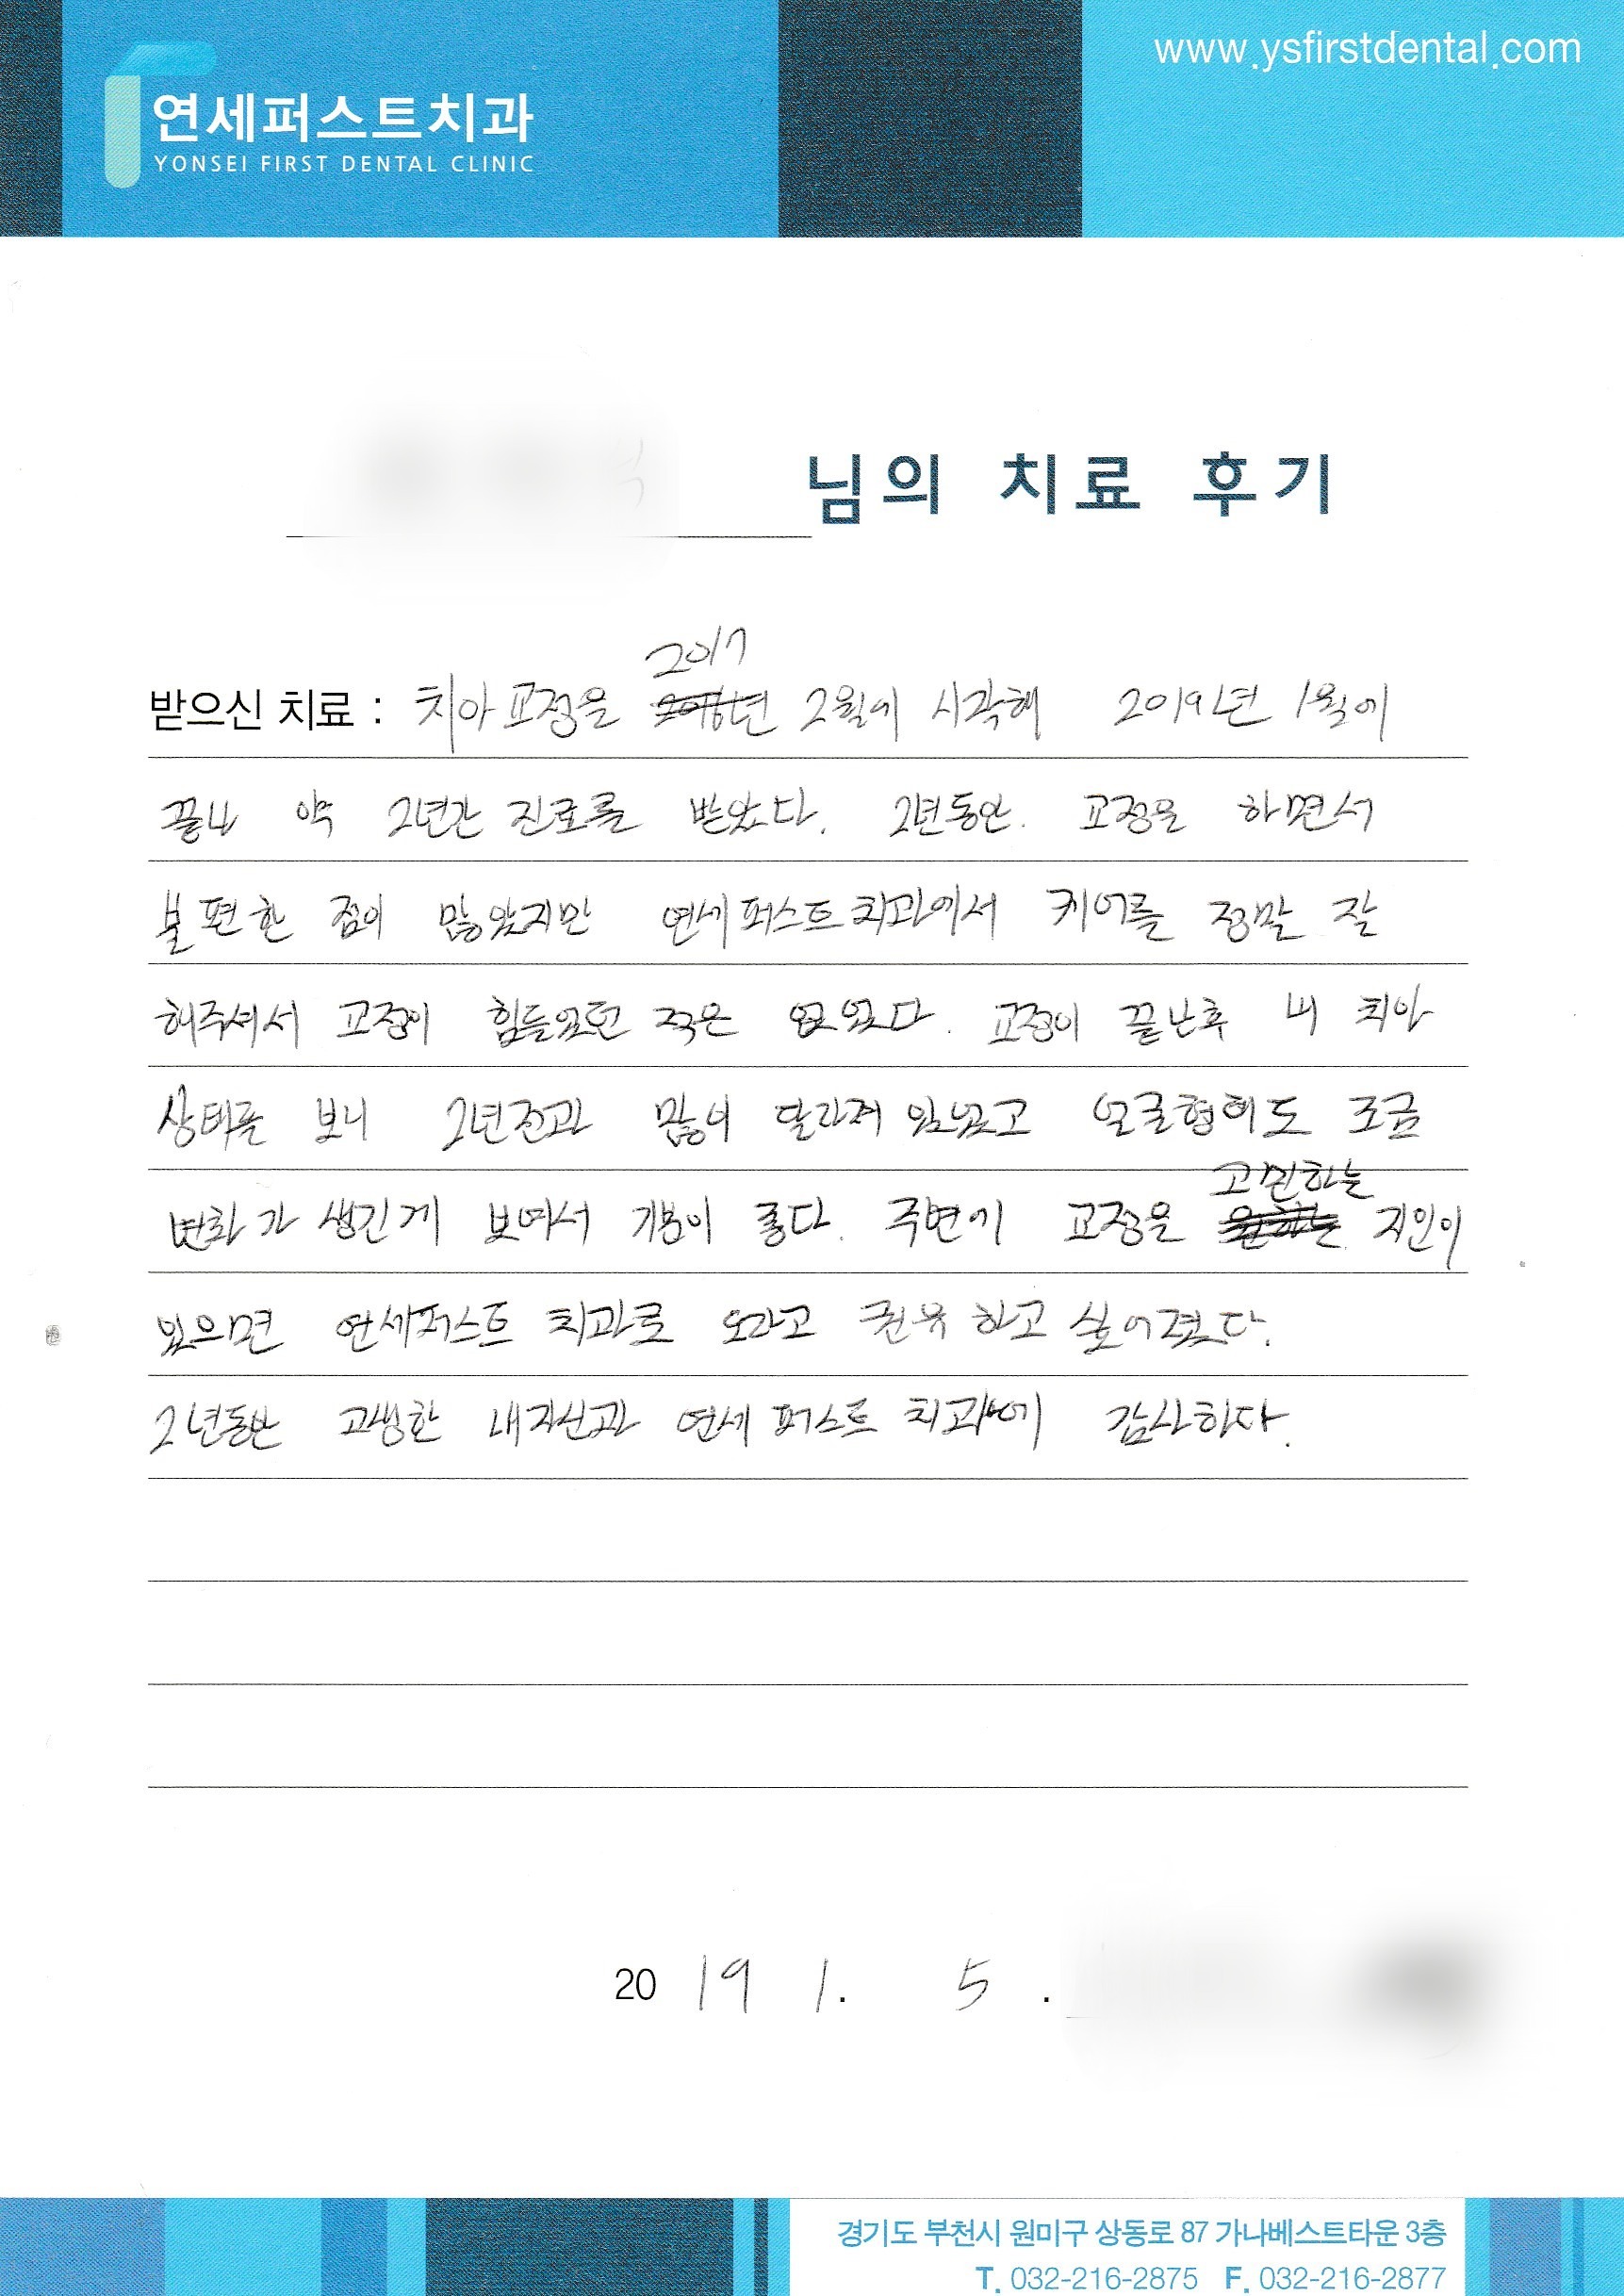 www.ysfirstdental.com
연세퍼스트치과
YONSEI FIRST DENTAL CLINIC
님의 치료 후기
2017
받으신 치료 : 치아교정을 년 2월에 시작해 2019년 1월에
끝나 약 2년간 진료를 받았다. 2년동안. 교정을 하면서
불편한 점이 많았지만 연세퍼스트치과에서 케어를 정말 잘
해주셔서 교정이 힘들었던 적은 없었다. 교정이 끝난후 내 치아
상태를 보니 2년전과 많이 달라져 있었고 얼굴형에도 조금
고민하는
변화가 생긴게 보여서 기분이 좋다. 주변에 교정을 지인이
있으면 연세퍼스트 치과로 오라고 권유하고 싶어졌다.
2년동안 고생한 내자신과 연세퍼스트 치과에 감사하다.
2019 1. 5 .
경기도 부천시 원미구 상동로 87 가나베스트타운 3층
T. 032-216-2875 F. 032-216-2877